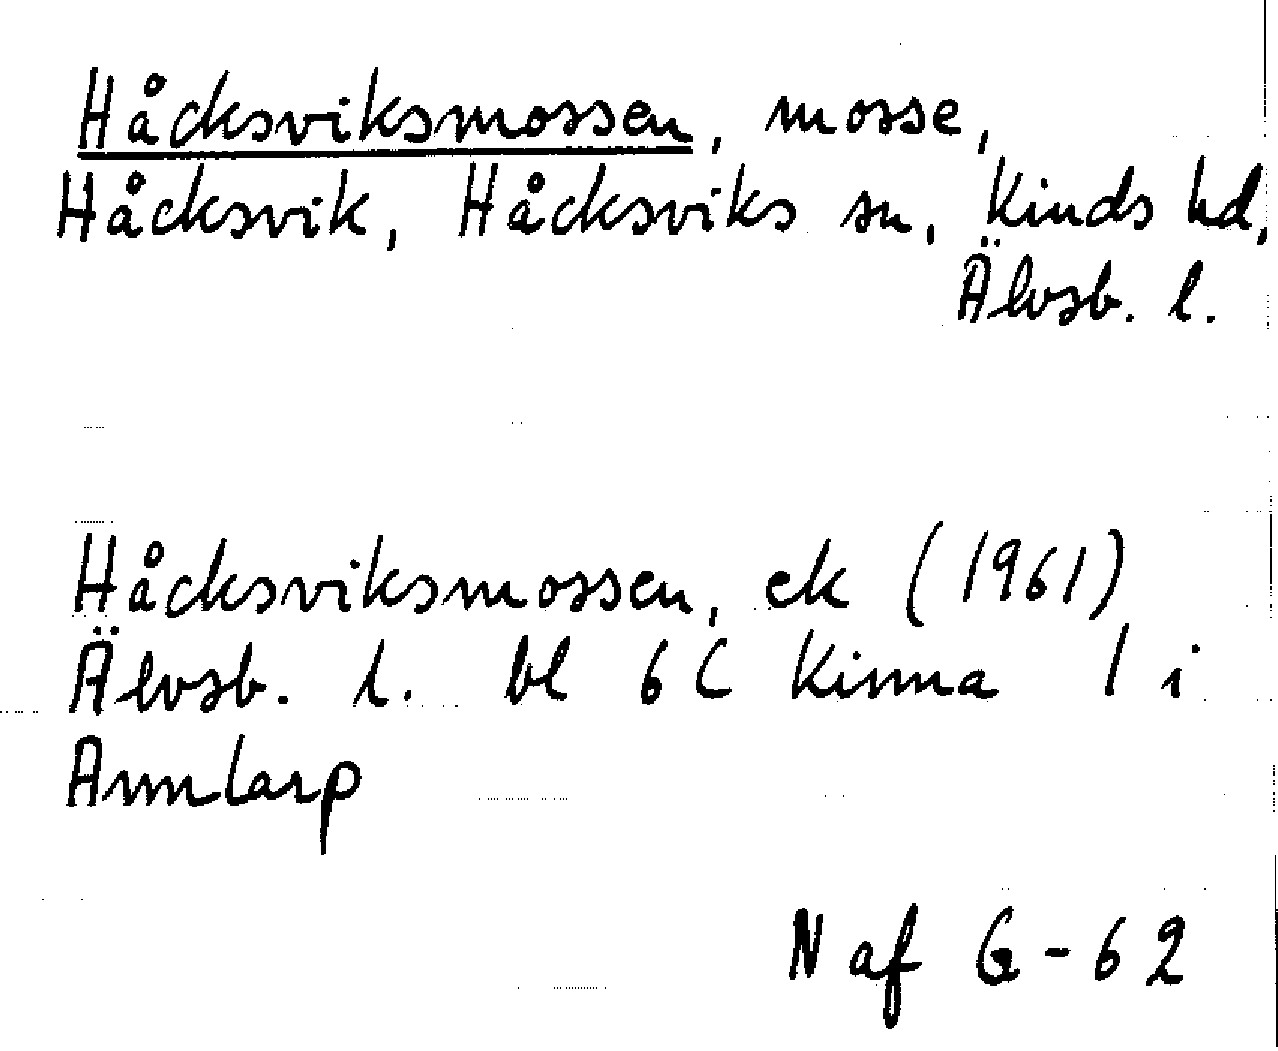 Håcksviksmossen, mosse,
Håcksvik, Håcksviks sn, Kinds hd,
Älvsb. l.
Håcksviksmossen, ek (1961)
Älvsb. l. bl 6 C Kinna 1 i
Annlarp
N af G-62